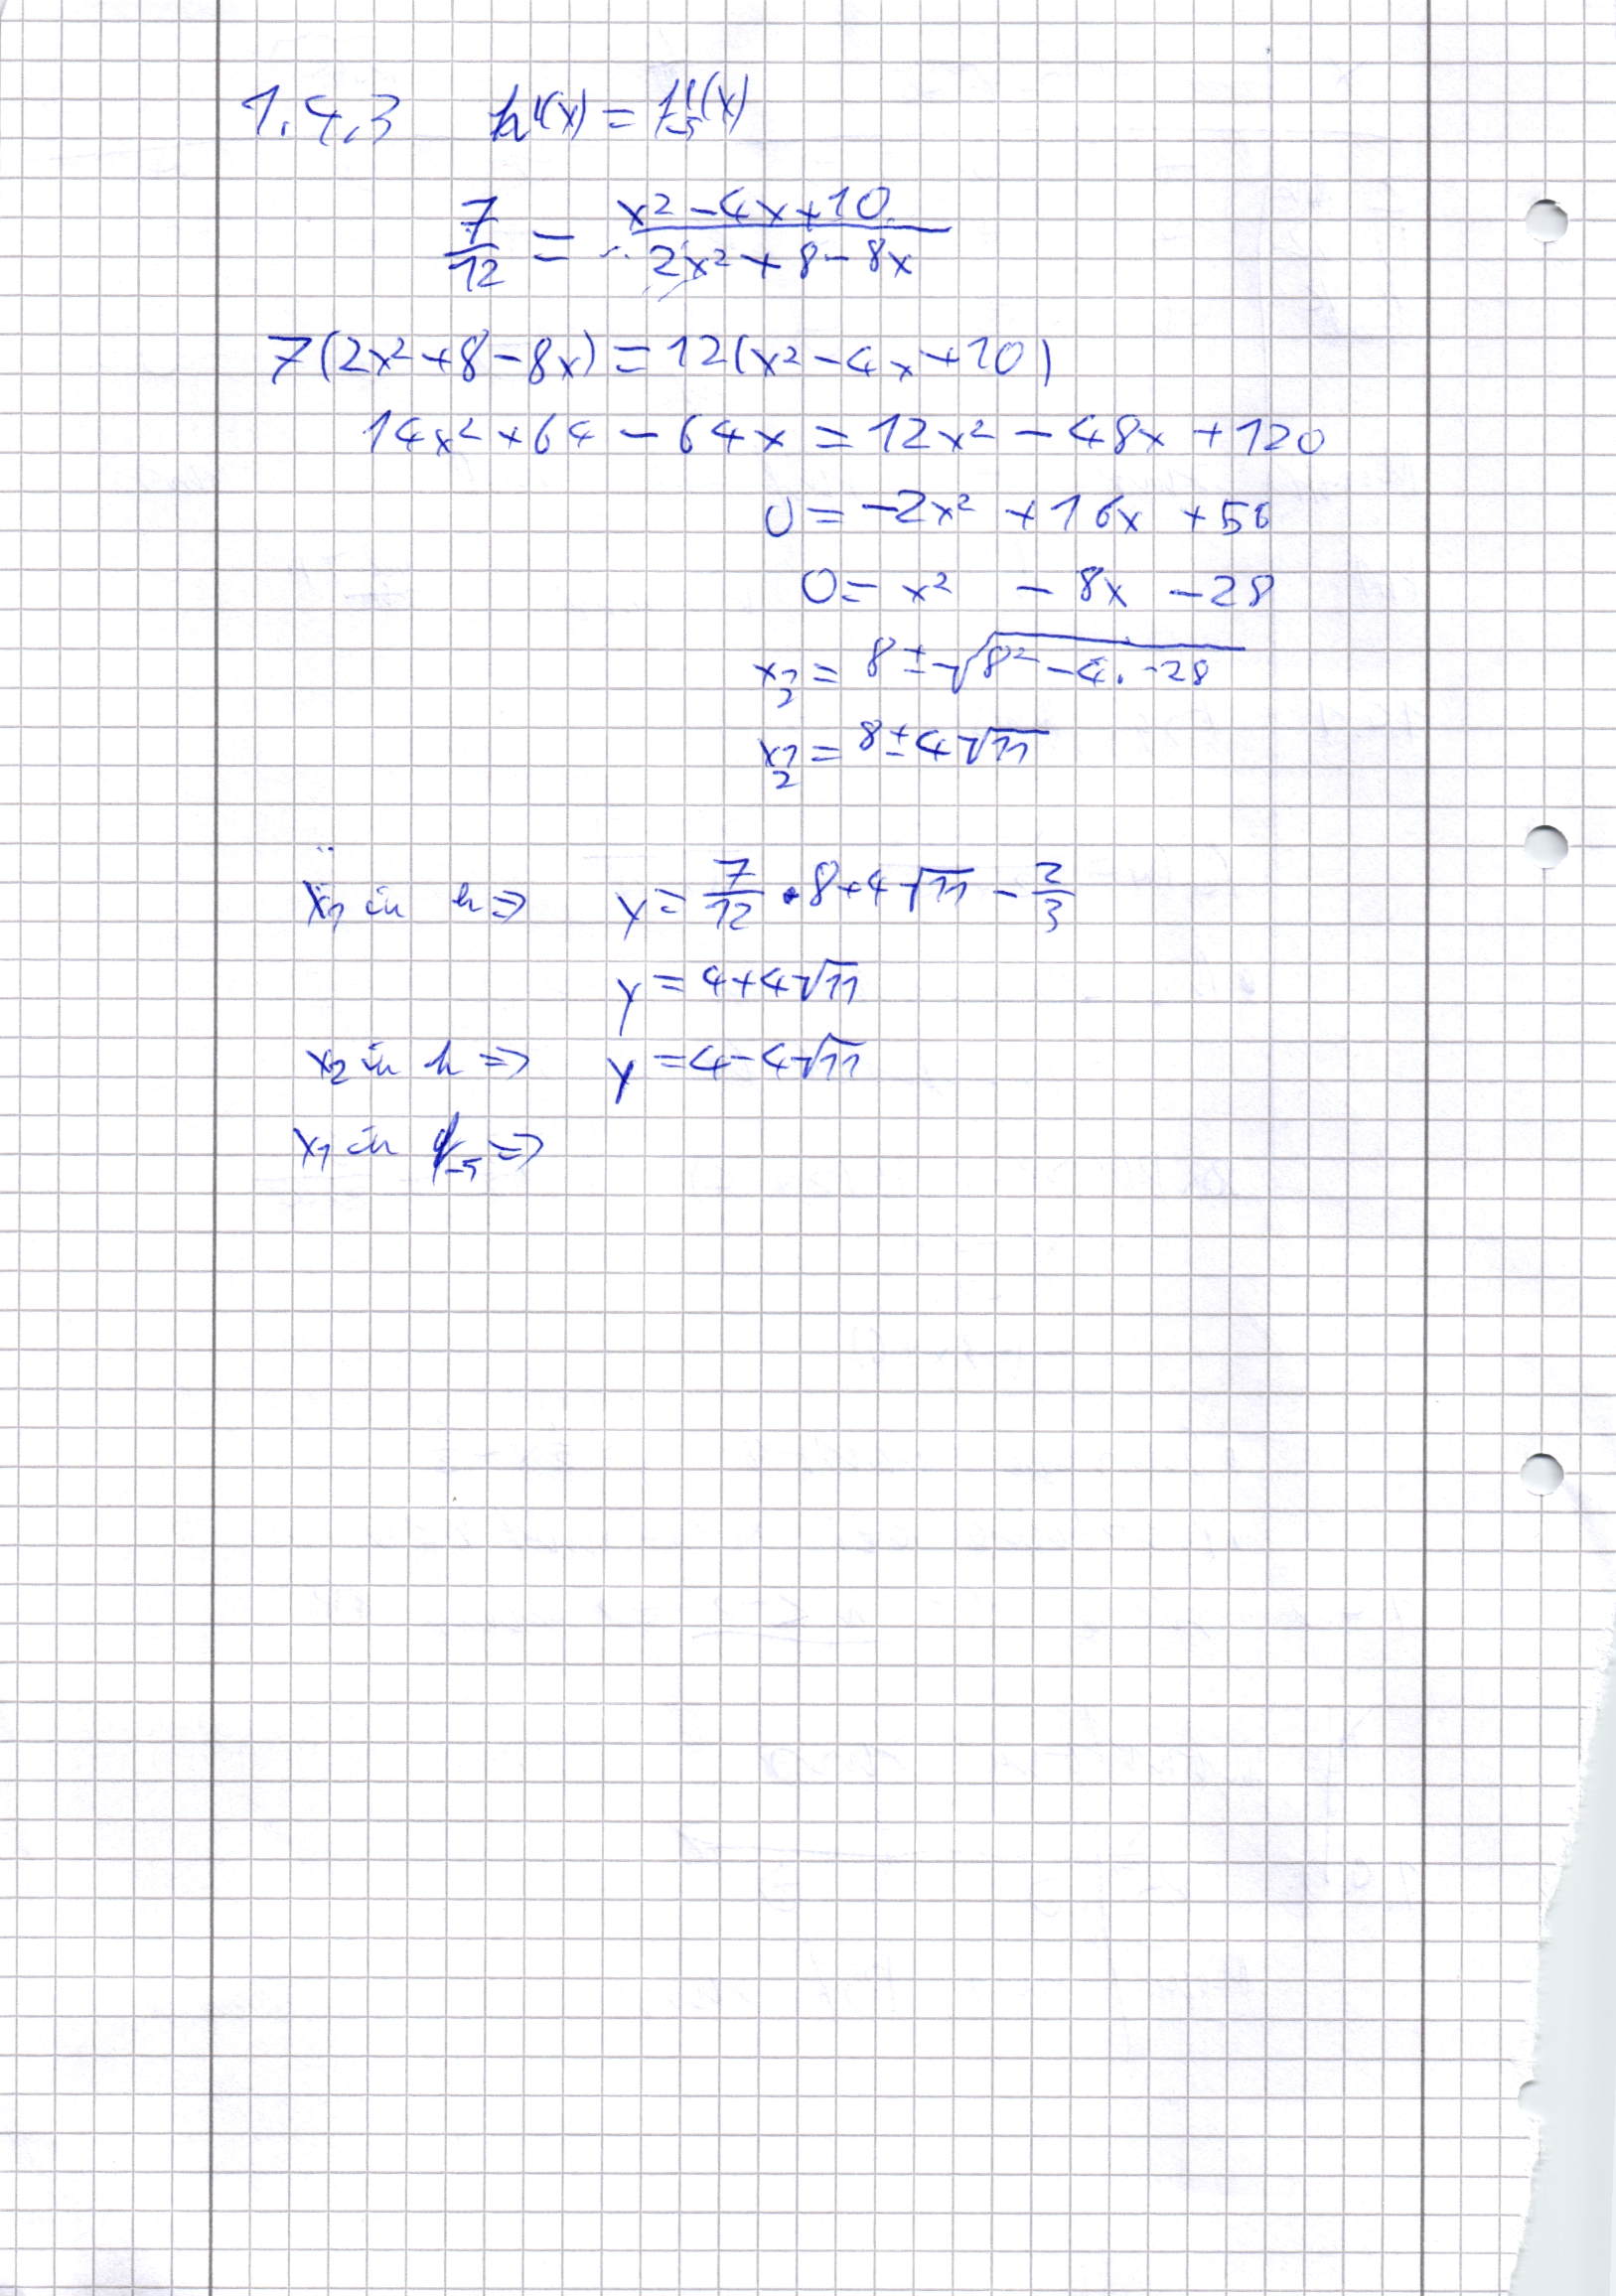 1.4.3 h'(x) = f'₋₅(x)
7/12 = (x² - 4x + 10)/(2x² + 8 - 8x)
7(2x² + 8 - 8x) = 12(x² - 4x + 10)
14x² + 64 - 64x = 12x² - 48x + 120
0 = -2x² + 16x + 56
0 = x² - 8x - 28
x₁/₂ = 8 ± √(8² - 4 · -28)
x₁/₂ = 8 ± 4√11
x₁ in h ⇒ y = 7/12 · 8 + 4√11 - 2/3
y = 4 + 4√11
x₂ in h ⇒ y = 4 - 4√11
x₁ in f₋₅ ⇒